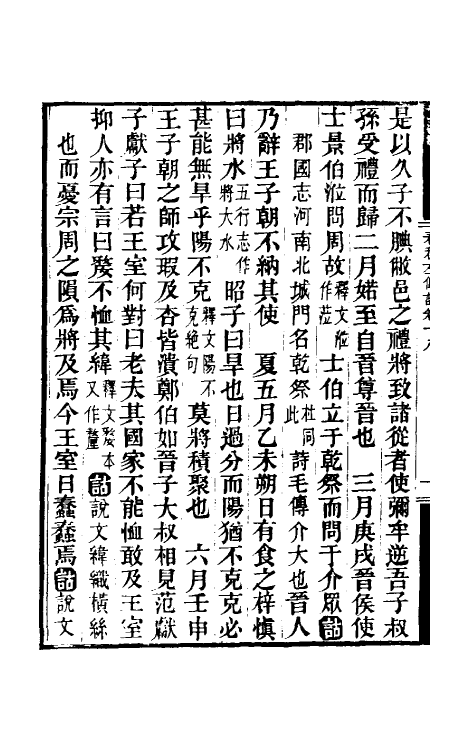 是以久子不腆敝邑之禮將致諸從者使彌牟逆吾子叔
孫受禮而歸二月婼至自晉尊晉也　三月庚戌晉侯使
士景伯涖問周故釋文涖作莅士伯立于乾祭而問于介眾詁
郡國志河南北城門名乾祭杜同此詩毛傳介大也晉人
乃辭王子朝不納其使　夏五月乙未朔日有食之梓慎
曰將水五行志作將大水昭子曰旱也日過分而陽猶不克克必
甚能無旱乎陽不克釋文陽不克絕句莫將積聚也　六月壬申
王子朝之師攻瑕及杏皆潰鄭伯如晉子大叔相見范獻
子獻子曰若王室何對曰老夫其國家不能恤敢及王室
抑人亦有言曰嫠不恤其緯釋文嫠本又作釐詁說文緯織橫絲
也而憂宗周之隕為將及焉今王室日蠢蠢焉詁說文